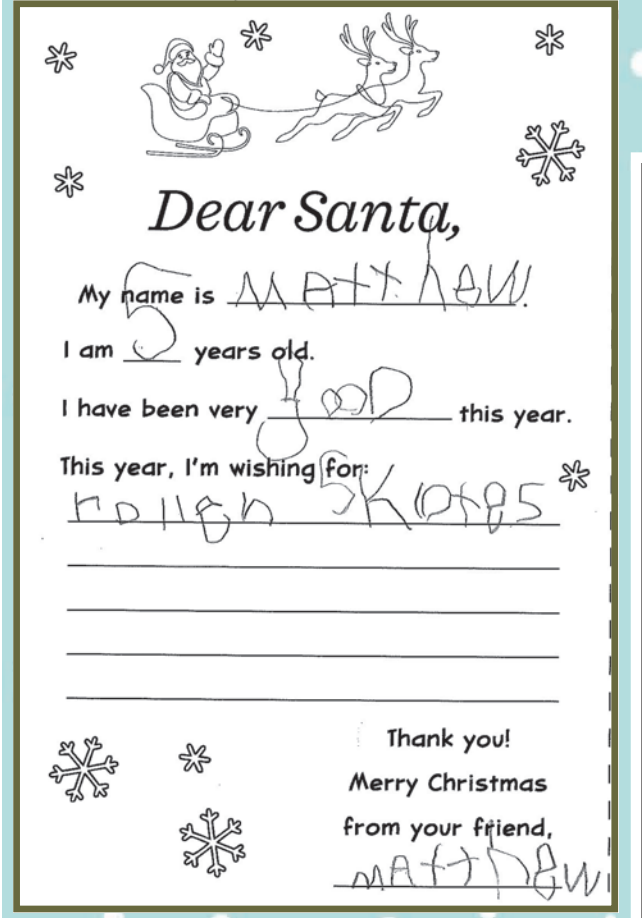 Dear Santa,
My name is Matthew.
I am 5 years old.
I have been very good this year.
This year, I'm wishing for:
roller skates
Thank you!
Merry Christmas
from your friend,
Matthew